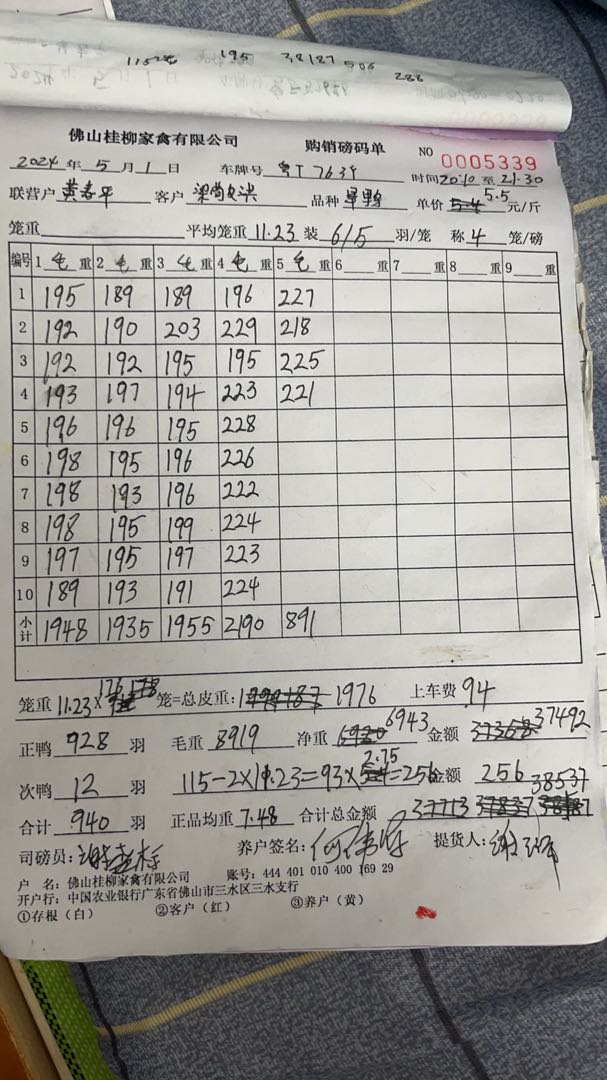 195 38187 506
288
2024 5月1日
佛山桂柳家禽有限公司 购销磅码单 NO 0005339
2024年5月1日 车牌号 粤T763 时间20:10至21:30
联营户 客户 品种 旱鸭 单价 5.4 5.5 元/斤
笼重 平均笼重 11.23 装 6/5 羽/笼 称 4 笼/磅
编号 1 毛 重 2 毛 重 3 毛 重 4 毛 重 5 毛 重 6 重 7 重 8 重 9 重
1 195 189 189 196 227
2 192 190 203 229 218
3 192 192 195 195 225
4 193 197 194 223 221
5 196 196 195 228
6 198 195 196 226
7 198 193 196 222
8 198 195 199 224
9 197 195 197 223
10 189 193 191 224
小计 1948 1935 1955 2190 891
笼重 11.23× 176 笼=总皮重: 1976 上车费 94
正鸭 928 羽 毛重 8919 净重 6943 金额 37492
次鸭 12 羽 115-2×11.23=93×2.75=256 金额 256 38537
合计 940 羽 正品均重 7.48 合计总金额 37713 37837 38187
司磅员: 养户签名: 提货人:
户 名: 佛山桂柳家禽有限公司 账号: 444 401 010 400 169 29
开户行: 中国农业银行广东省佛山市三水区三水支行
①存根（白） ②客户（红） ③养户（黄）